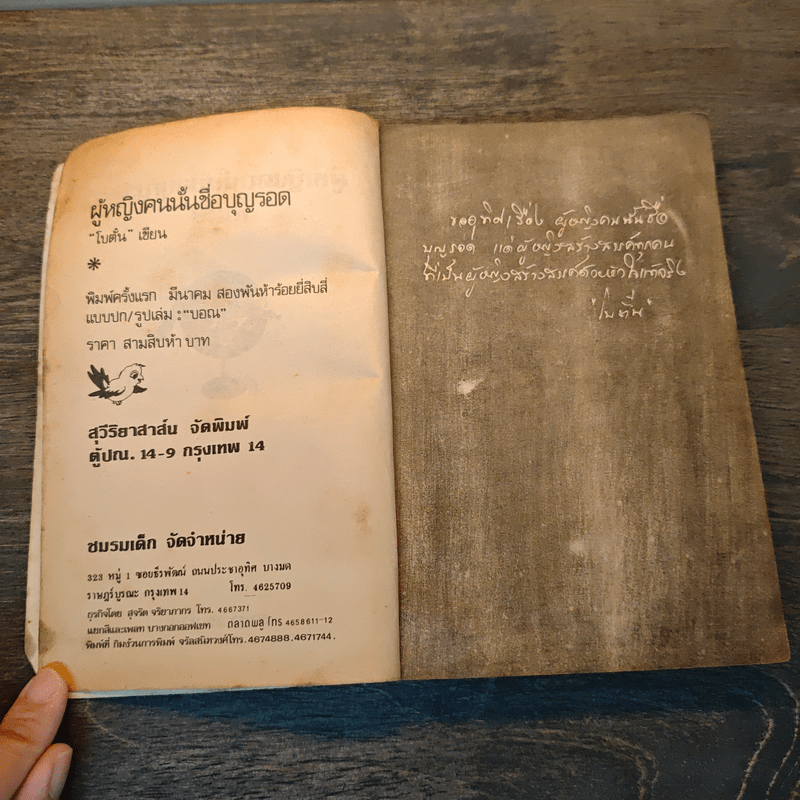 ผู้หญิงคนนั้นชื่อบุญรอด
"โบตั๋น" เขียน
*
พิมพ์ครั้งแรก มีนาคม สองพันห้าร้อยยี่สิบสี่
แบบปก/รูปเล่ม : "บอณ"
ราคา สามสิบห้า บาท
สุวีริยาสาส์น จัดพิมพ์
ตู้ปณ. 14-9 กรุงเทพ 14
ชมรมเด็ก จัดจำหน่าย
323 หมู่ 1 ซอยธีรพัฒน์ ถนนประชาอุทิศ บางมด
ราษฎร์บูรณะ กรุงเทพ 14 โทร. 4625709
ธุรกิจโดย สุจริต จริยาภากร โทร. 4667371
แยกสีและเพลท บางกอกออฟเซท ตลาดพลู โทร 4658611-12
พิมพ์ที่ กิมง้วนการพิมพ์ จรัลสนิทวงศ์โทร. 4674888.4671744.
ขออุทิศเรื่อง ผู้หญิงคนนั้นชื่อ
บุญรอด แด่ผู้หญิงสร้างสรรค์ทุกคน
ที่เป็นผู้หญิงสร้างสรรค์ด้วยหัวใจแท้จริง
"โบตั๋น"